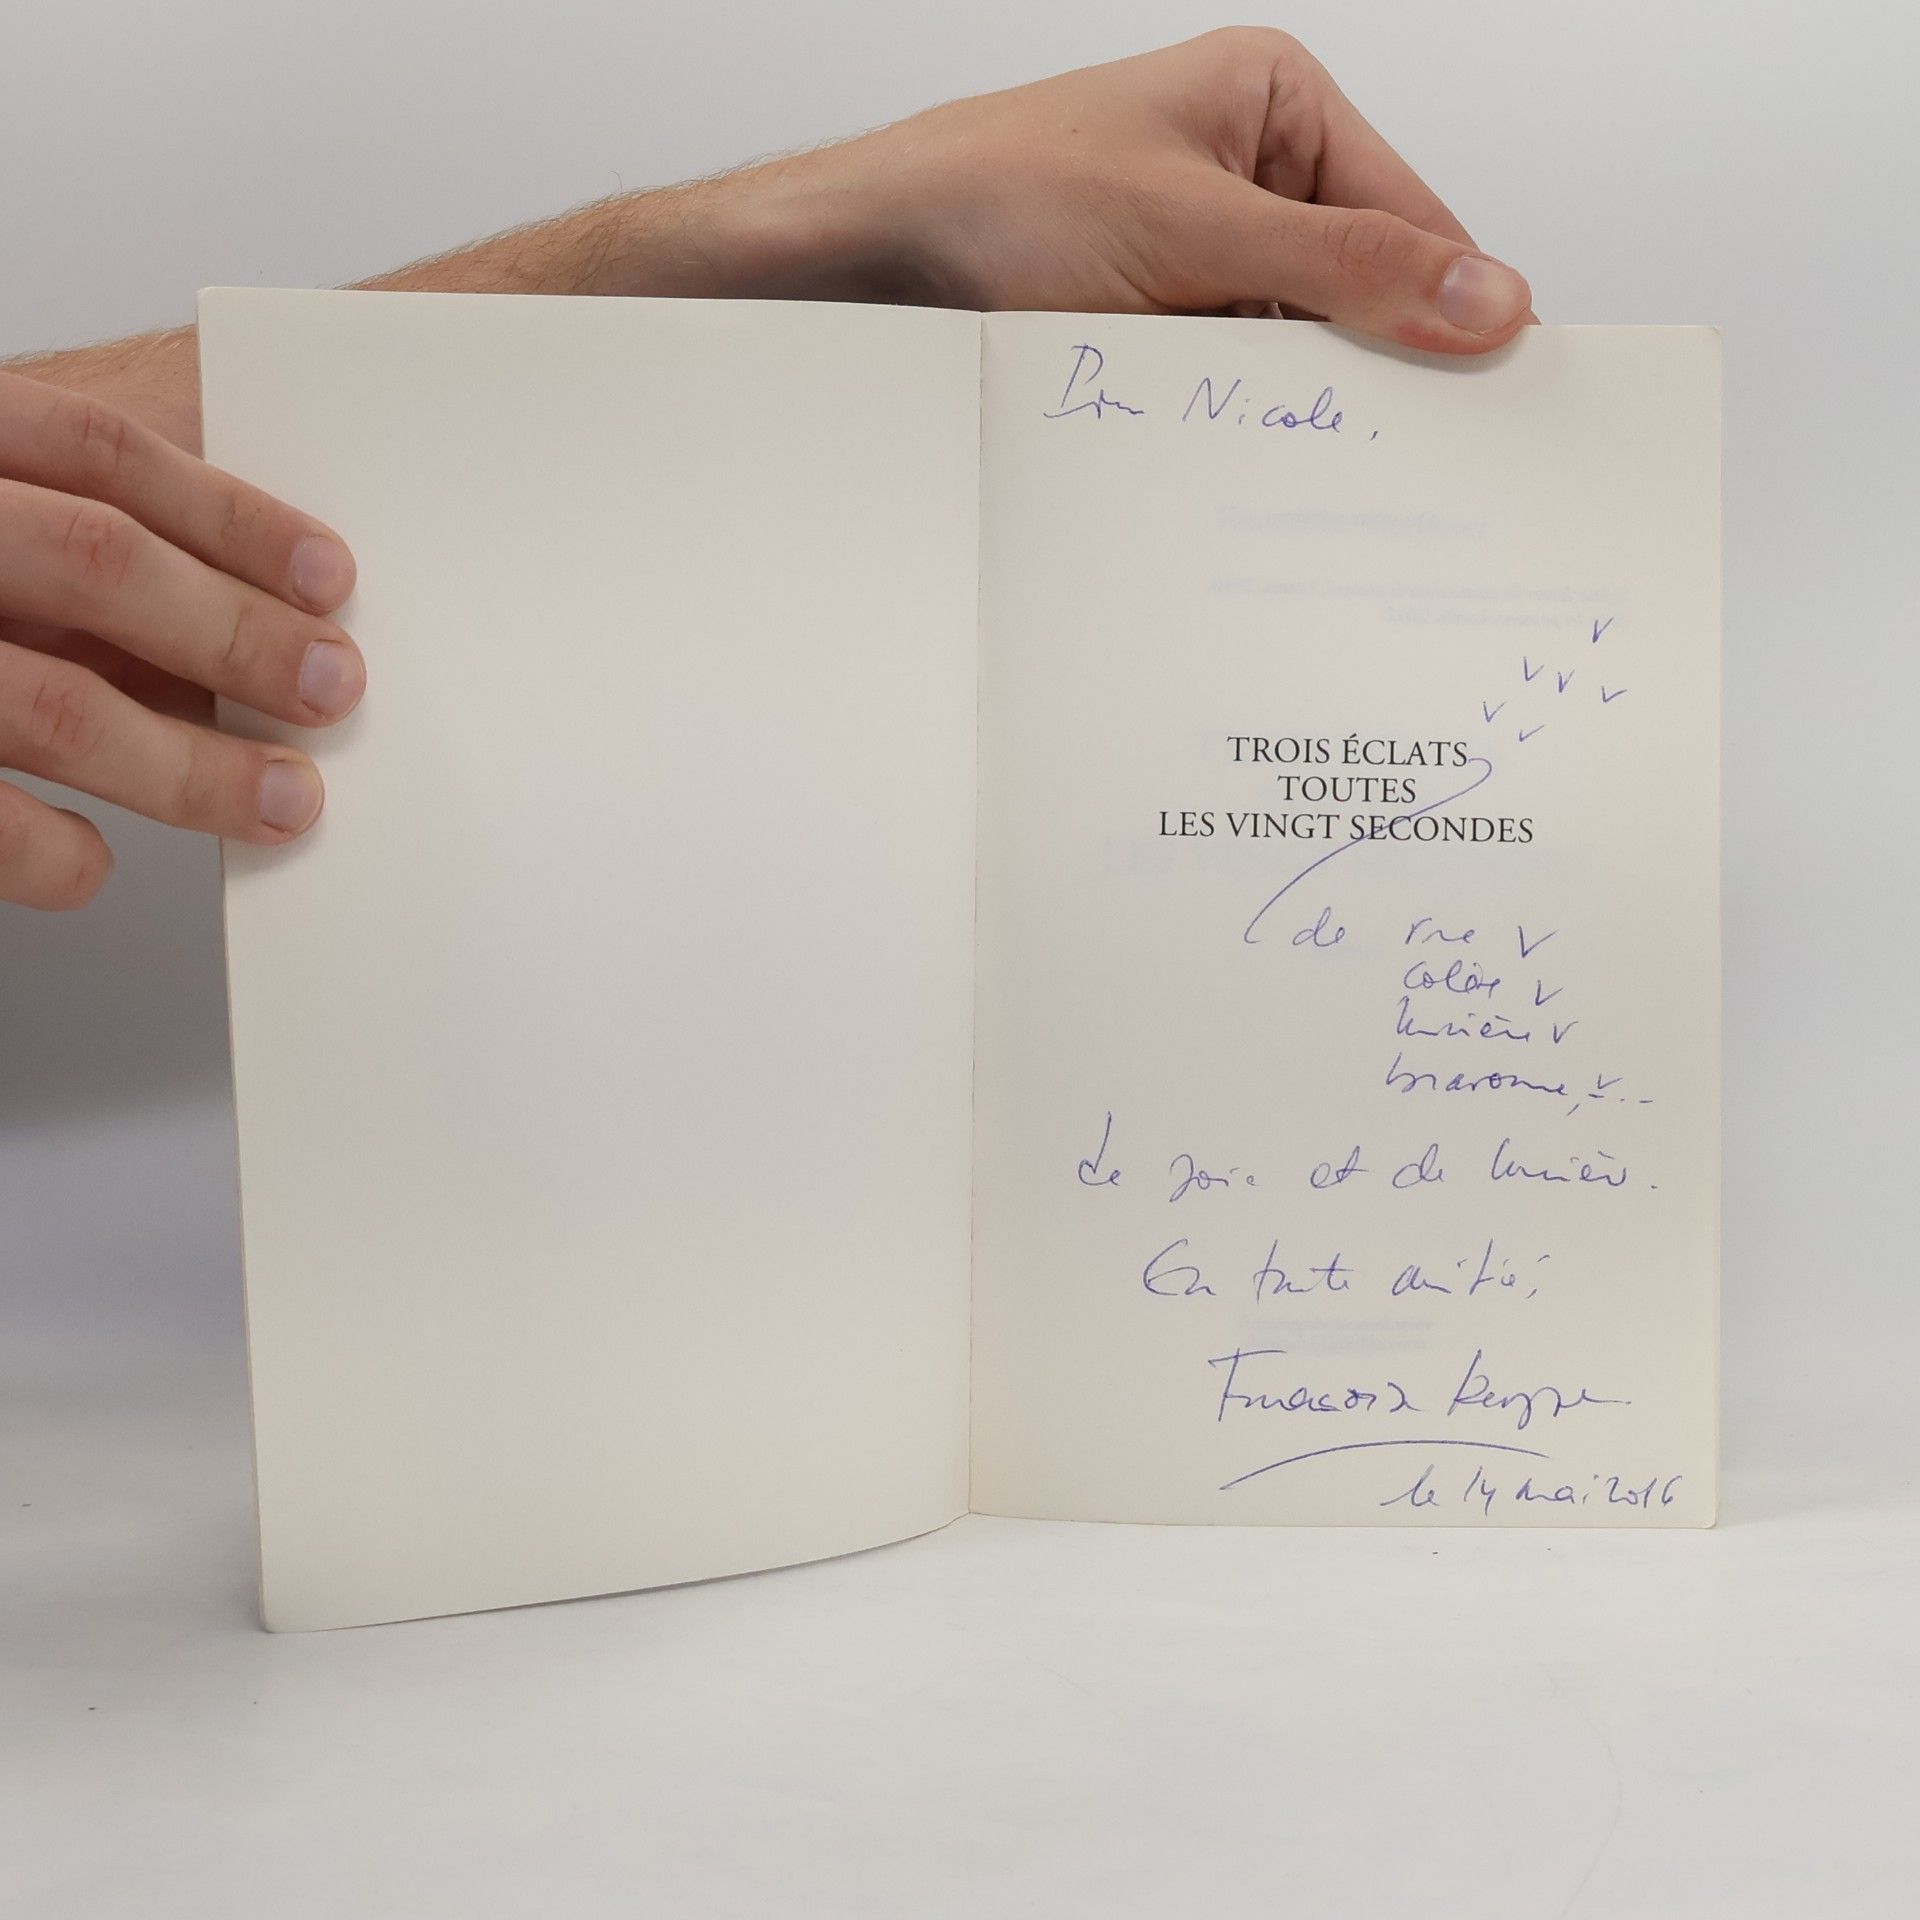 Pour Nicole,
TROIS ÉCLATS
TOUTES
LES VINGT SECONDES
de rire
colère
lumière
de joie et de lumière.
En toute amitié,
le 14 mai 2016